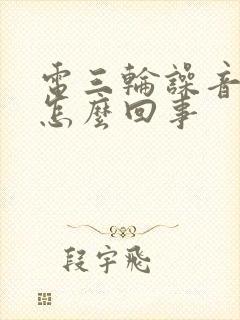 電三輪譟音
怎麼回事
段宇飛